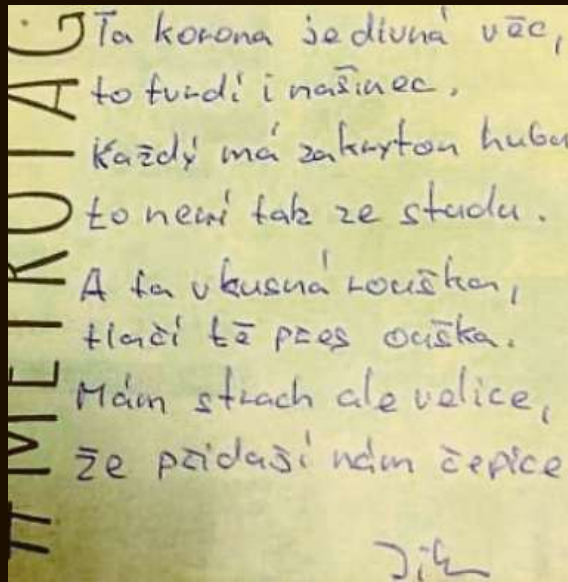 #METROTAG
Ta korona je divná věc,
to tvrdí i našinec.
Každý má zakrytou hubu
to není tak ze studu.
A ta vkusná rouška,
tlačí tě přes ouška.
Mám strach ale velice,
že přidaší nám čepice